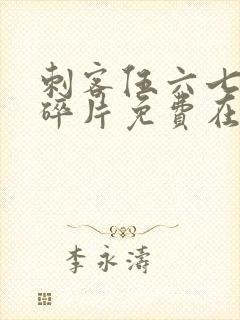 刺客伍六七
碎片免費在
李永濤